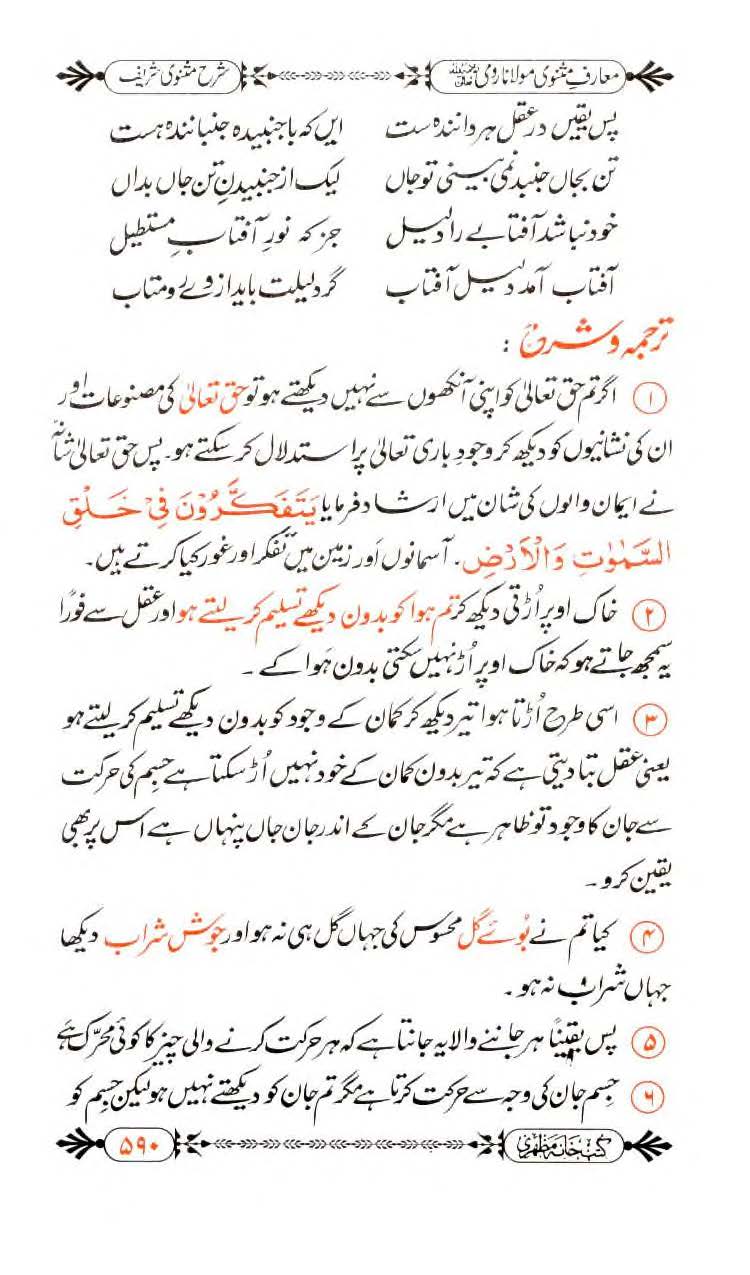 معارفِ مثنوی مولانا رومیؒ شرح مثنوی شریف
پس یقیں در عقل ہر دانندہ ست ایں کہ با جنبیدہ جنبانندہ ہست
تن بجاں جنبد نمی بینی تو جاں لیک از جنبیدنِ تن جاں بداں
خود نباشد آفتابے را دلیل جز کہ نورِ آفتابِ مستطیل
آفتاب آمد دلیل آفتاب گر دلیلت باید از وے رومتاب
ترجمہ و شرح :
۱ اگر تم حق تعالیٰ کو اپنی آنکھوں سے نہیں دیکھتے ہو تو حق تعالیٰ کی مصنوعات اور
ان کی نشانیوں کو دیکھ کر وجودِ باری تعالیٰ پر استدلال کر سکتے ہو۔ پس حق تعالیٰ شانہٗ
نے ایمان والوں کی شان میں ارشاد فرمایا يَتَفَكَّرُوْنَ فِيْ خَلْقِ
السَّمٰوٰتِ وَالْاَرْضِ۔ آسمانوں اور زمین میں تفکر اور غور کیا کرتے ہیں۔
۲ خاک اوپر اُڑتی دیکھ کر تم ہوا کو بدون دیکھے تسلیم کر لیتے ہو اور عقل سے فورًا
یہ سمجھ جاتے ہو کہ خاک اوپر اُڑ نہیں سکتی بدون ہَوا کے ۔
۳ اسی طرح اُڑتا ہوا تیر دیکھ کر کمان کے وجود کو بدون دیکھے تسلیم کر لیتے ہو
یعنی عقل بتا دیتی ہے کہ تیر بدون کمان کے خود نہیں اُڑ سکتا ہے جسم کی حرکت
سے جان کا وجود تو ظاہر ہے مگر جان کے اندر جانِ جاں پنہاں ہے اس پر بھی
یقین کرو ۔
۴ کیا تم نے بُوئے گل محسوس کی جہاں گل ہی نہ ہو اور جوش شراب دیکھا
جہاں شراب نہ ہو ۔
۵ پس یقینًا ہر جاننے والا یہ جانتا ہے کہ ہر حرکت کرنے والی چیز کا کوئی محرّک ہے
۶ جسم جان کی وجہ سے حرکت کرتا ہے مگر تم جان کو دیکھتے نہیں ہو لیکن جسم کو
کتب خانہ مظہری ۵۹۰